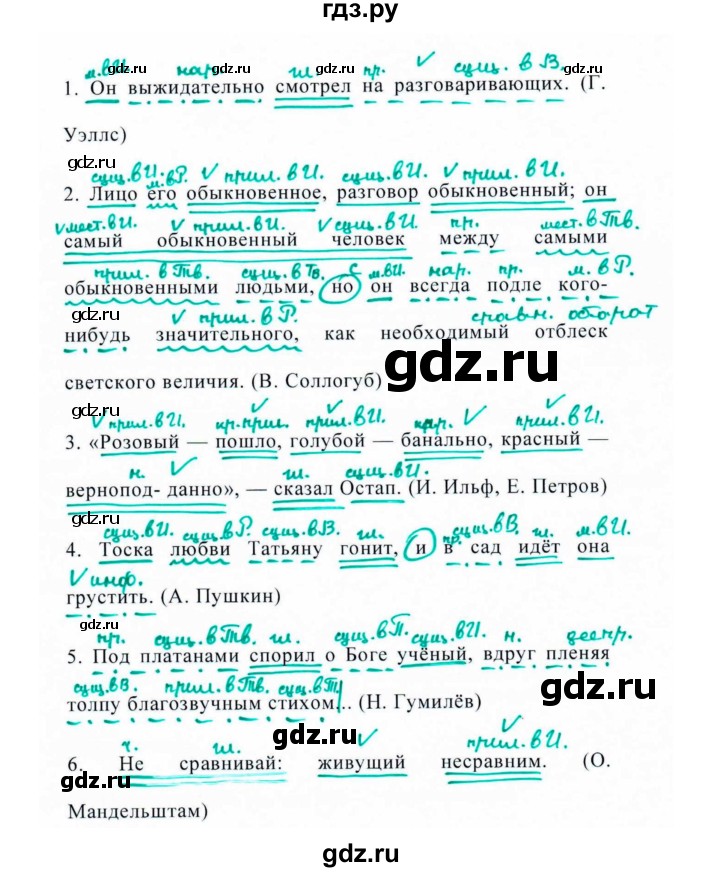 гдз.ру
м.вИ. нар. гл. пр. V сущ. в В.
1. Он выжидательно смотрел на разговаривающих. (Г.
Уэллс)
gdz.ru
gdz.ru
сущ.вИ. м.вР. V прил.вИ. сущ.вИ. V прил.вИ.
2. Лицо его обыкновенное, разговор обыкновенный; он
V мест.вИ. V прил.вИ. V сущ.вИ. пр. мест.вТв.
самый обыкновенный человек между самыми
прил.вТв. сущ.вТв. с м.вИ. нар. пр. м.вР.
обыкновенными людьми, но он всегда подле кого-
V прил.вР. сравн. оборот
нибудь значительного, как необходимый отблеск
gdz.ru
светского величия. (В. Соллогуб)
V прил.вИ. кр.прил. V прил.вИ. V прил.вИ.
3. «Розовый — пошло, голубой — банально, красный —
н. V гл. сущ.вИ.
вернопод- данно», — сказал Остап. (И. Ильф, Е. Петров)
gdz.ru
сущ.вИ. сущ.вР. сущ.вВ. гл. пр. сущ.вВ. гл. м.вИ.
4. Тоска любви Татьяну гонит, и в сад идёт она
V инф.
грустить. (А. Пушкин)
gdz.ru
пр. сущ.вТв. гл. сущ.вП. сущ.вИ. н. деепр.
5. Под платанами спорил о Боге учёный, вдруг пленяя
сущ.вВ. прил.вТв. сущ.вТв
толпу благозвучным стихом... (Н. Гумилёв)
gdz.ru
gdz.ru
ч. гл. V V прил.вИ.
6. Не сравнивай: живущий несравним. (О.
Мандельштам)
gdz.ru
gdz.ru